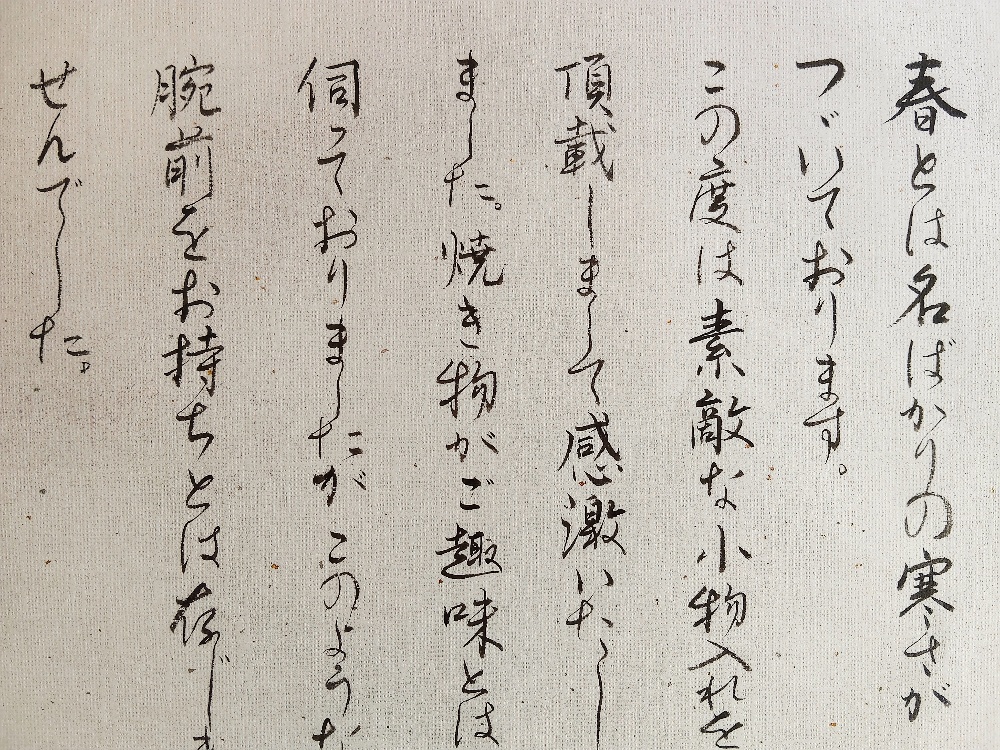 春とは名ばかりの寒さが
つゞいております。
この度は素敵な小物入れを
頂戴しまして感激いたし
ました。焼き物がご趣味とは
伺っておりましたがこのような
腕前をお持ちとは存じま
せんでした。